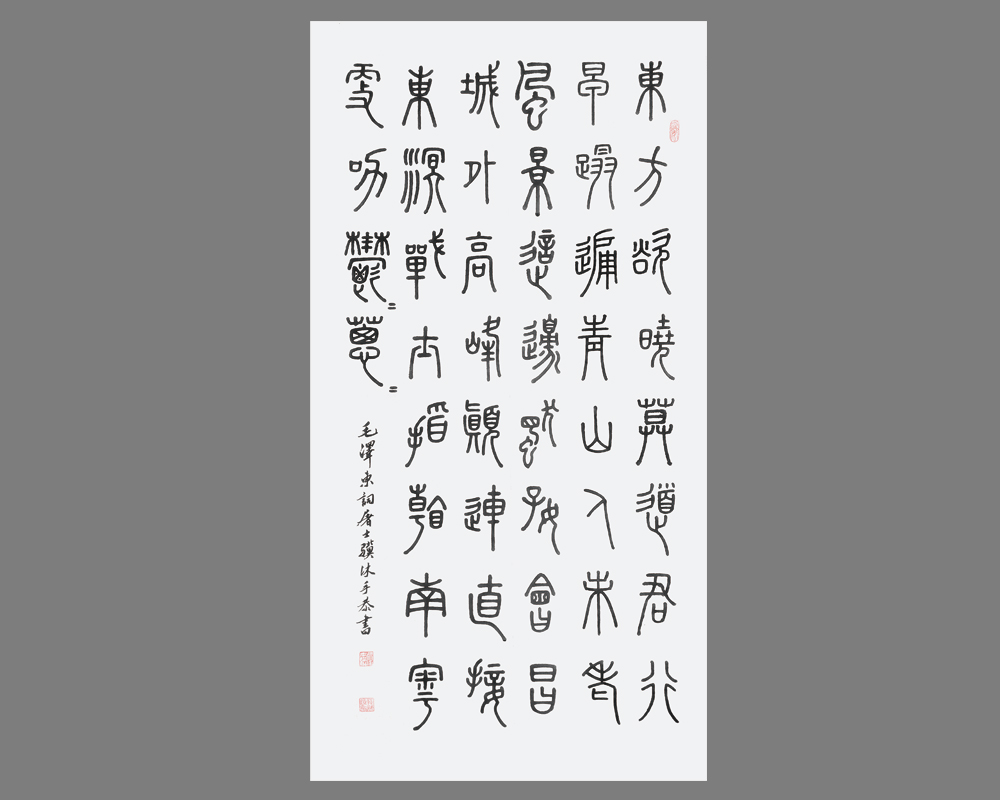 東方欲曉莫道君行
早蹋遍青山人未老
風景這邊獨好會昌
城外高峰顛連直接
東溟戰士指看南粵
更加鬱=蔥=
毛澤東詞 士驥沐手恭書